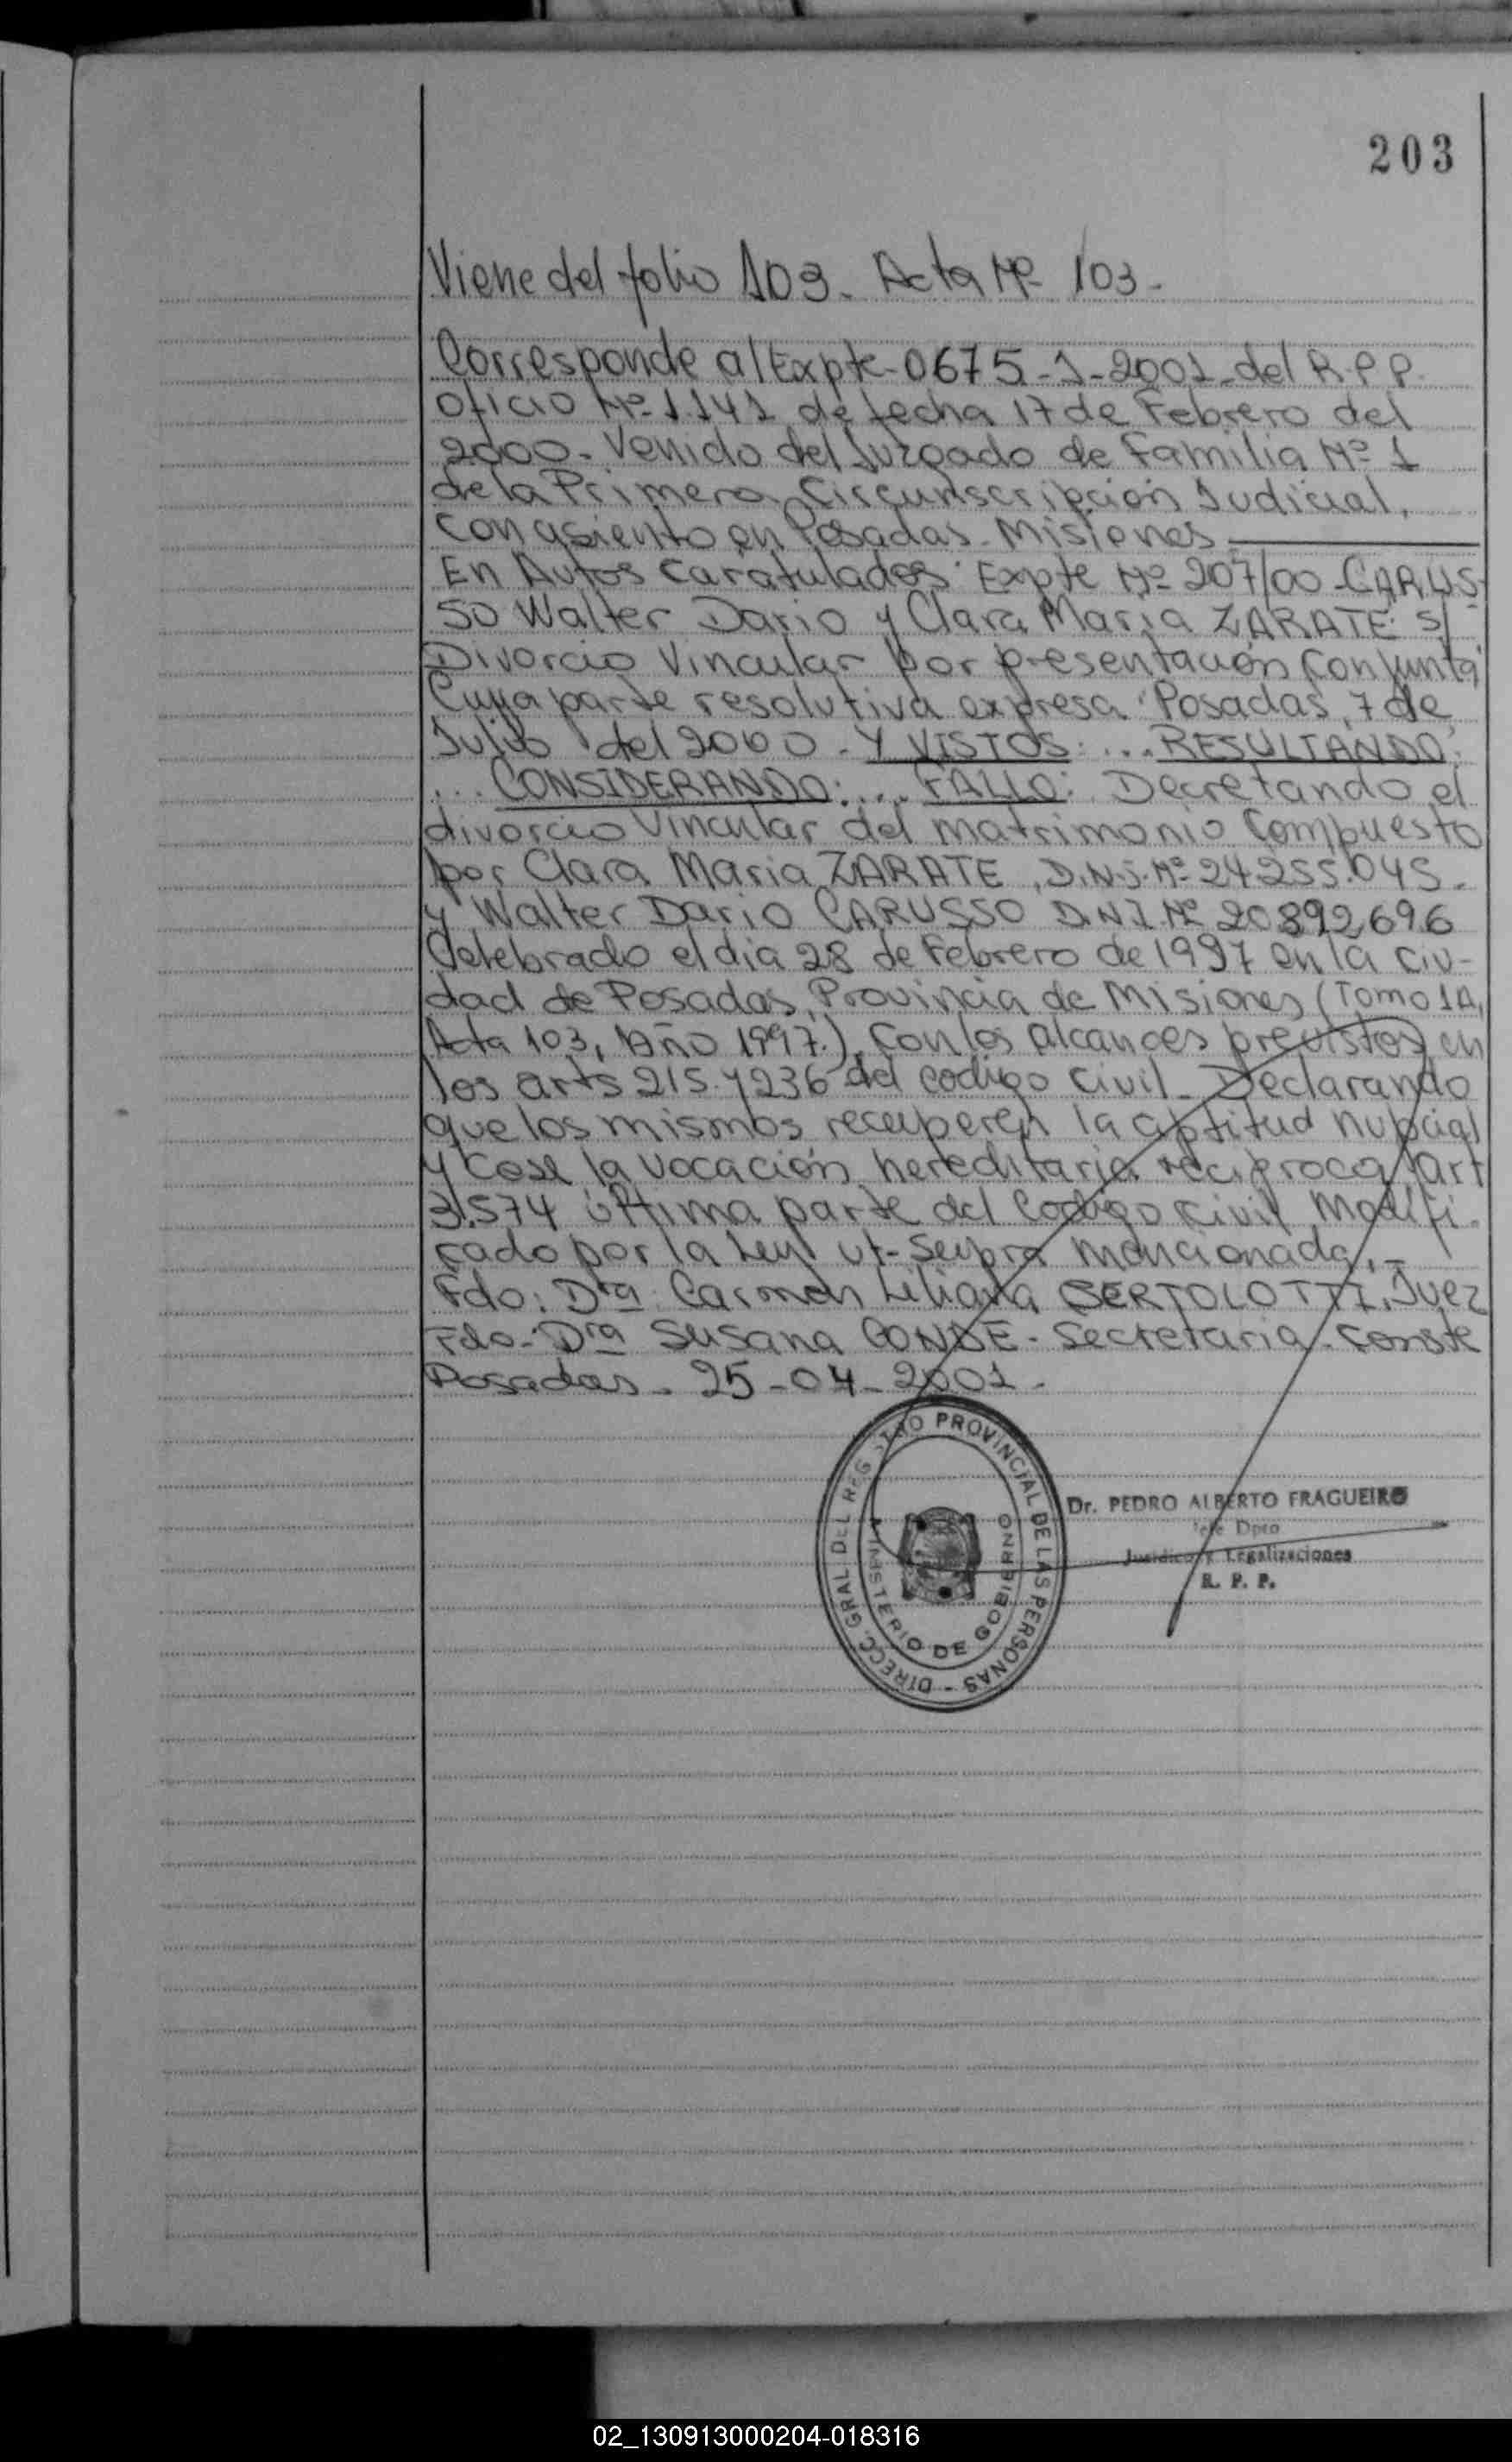 203
Viene del folio 103. Acta Nº 103.
Corresponde al Expte-0675-1-2001-del R.P.P.
Oficio Nº 1.141 de fecha 17 de Febrero del
2000. Venido del Juzgado de Familia Nº 1
de la Primera Circunscripción Judicial,
con asiento en Posadas. Misiones
En Autos Caratulados: Expte Nº 207/00-CARUS-
SO Walter Dario y Clara Maria ZARATE s/
Divorcio Vincular por presentación Conjunta
Cuya parte resolutiva expresa: Posadas, 7 de
Julio del 2000. Y VISTOS: ... RESULTANDO:
... CONSIDERANDO: ... FALLO: Decretando el
divorcio Vincular del matrimonio Compuesto
por Clara Maria ZARATE, D.N.I. Nº 24.255.045.
y Walter Dario CARUSSO D.N.I. Nº 20.892.696
Celebrado el día 28 de Febrero de 1997 en la ciu-
dad de Posadas, Provincia de Misiones (Tomo 1A,
Acta 103, Año 1997.), Con los alcances previstos en
los arts 215. y 236 del codigo civil. Declarando
que los mismos recuperen la aptitud nupcial
y Cese la vocación hereditaria reciproca, Art
3.574 última parte del Codigo Civil Modifi-
cado por la Ley ut-Supra mencionada,-
Fdo: Dra. Carmen Liliana BERTOLOTTI, Juez
Fdo- Dra Susana CONDE - Secretaria. Conste
Posadas. 25-04-2001.
DIRECC. GRAL. DEL REGISTRO PROVINCIAL DE LAS PERSONAS -
MINISTERIO DE GOBIERNO
Dr. PEDRO ALBERTO FRAGUEIRO
Jefe Dpto
Jurídico y Legalizaciones
R. P. P.
02_130913000204-018316